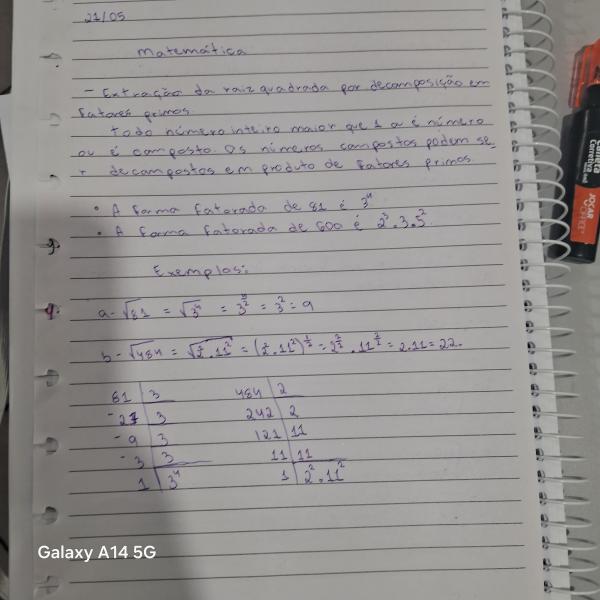 21/05
Matemática
- Extração da raiz quadrada por decomposição em
fatores primos.
Todo número inteiro maior que 1 ou é número
ou é composto. Os números compostos podem se
r decompostos em produto de fatores primos.
• A forma fatorada de 81 é 3⁴
• A forma fatorada de 600 é 2³.3.5².
Exemplos:
a- √81 = √3⁴ = 3^(4/2) = 3² = 9
b- √484 = √2².11² = (2².11²)^(1/2) = 2^(2/2).11^(2/2) = 2.11 = 22.
81 | 3 484 | 2
-27 | 3 242 | 2
-9 | 3 121 | 11
-3 | 3 11 | 11
1 | 3⁴ 1 | 2².11²
Galaxy A14 5G
JOCAR
OFFICE